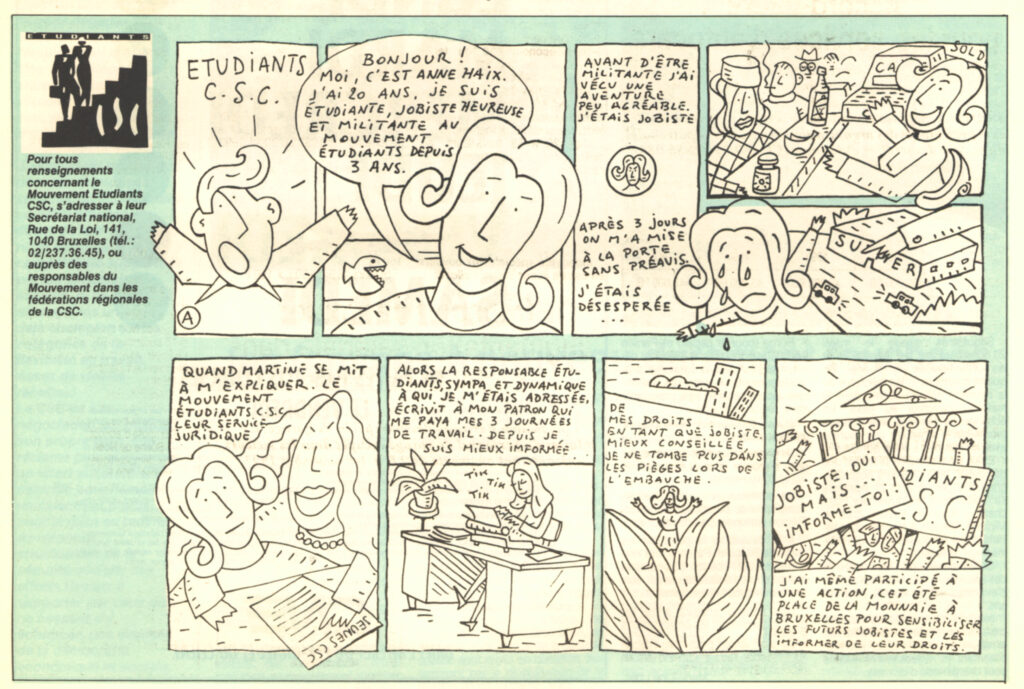 ETUDIANTS
Pour tous
renseignements
concernant le
Mouvement Etudiants
CSC, s'adresser à leur
Secrétariat national,
Rue de la Loi, 141,
1040 Bruxelles (tél.:
02/237.36.45), ou
auprès des
responsables du
Mouvement dans les
fédérations régionales
de la CSC.
ETUDIANTS
C.S.C.
A
BONJOUR !
MOI, C'EST ANNE HAIX.
J'AI 20 ANS. JE SUIS
ÉTUDIANTE, JOBISTE HEUREUSE
ET MILITANTE AU
MOUVEMENT
ÉTUDIANTS DEPUIS
3 ANS.
AVANT D'ÊTRE
MILITANTE J'AI
VÉCU UNE
AVENTURE
PEU AGRÉABLE.
J'ÉTAIS JOBISTE
SOLD
CA
APRÈS 3 JOURS
ON M'A MISE
À LA PORTE
SANS PRÉAVIS.
J'ÉTAIS
DÉSESPERÉE
...
SUPER
QUAND MARTINE SE MIT
À M'EXPLIQUER. LE
MOUVEMENT
ÉTUDIANTS C.S.C
LEUR SERVICE
JURIDIQUE
JEUNES CSC
ALORS LA RESPONSABLE ÉTU-
DIANTS, SYMPA ET DYNAMIQUE
À QUI JE M'ÉTAIS ADRESSÉE,
ÉCRIVIT À MON PATRON QUI
ME PAYA MES 3 JOURNÉES
DE TRAVAIL. DEPUIS JE
SUIS MIEUX IMFORMÉE
TIK
TIK
TIK
DE
MES DROITS
EN TANT QUE JOBISTE.
MIEUX CONSEILLÉE,
JE NE TOMBE PLUS DANS
LES PIÈGES LORS DE
L'EMBAUCHE.
JOBISTE, OUI
MAIS...
IMFORME-TOI!
DIANTS
S.C.
J'AI MÊME PARTICIPÉ À
UNE ACTION, CET ÉTÉ
PLACE DE LA MONNAIE À
BRUXELLES POUR SENSIBILISER
LES FUTURS JOBISTES ET LES
IMFORMER DE LEUR DROITS.